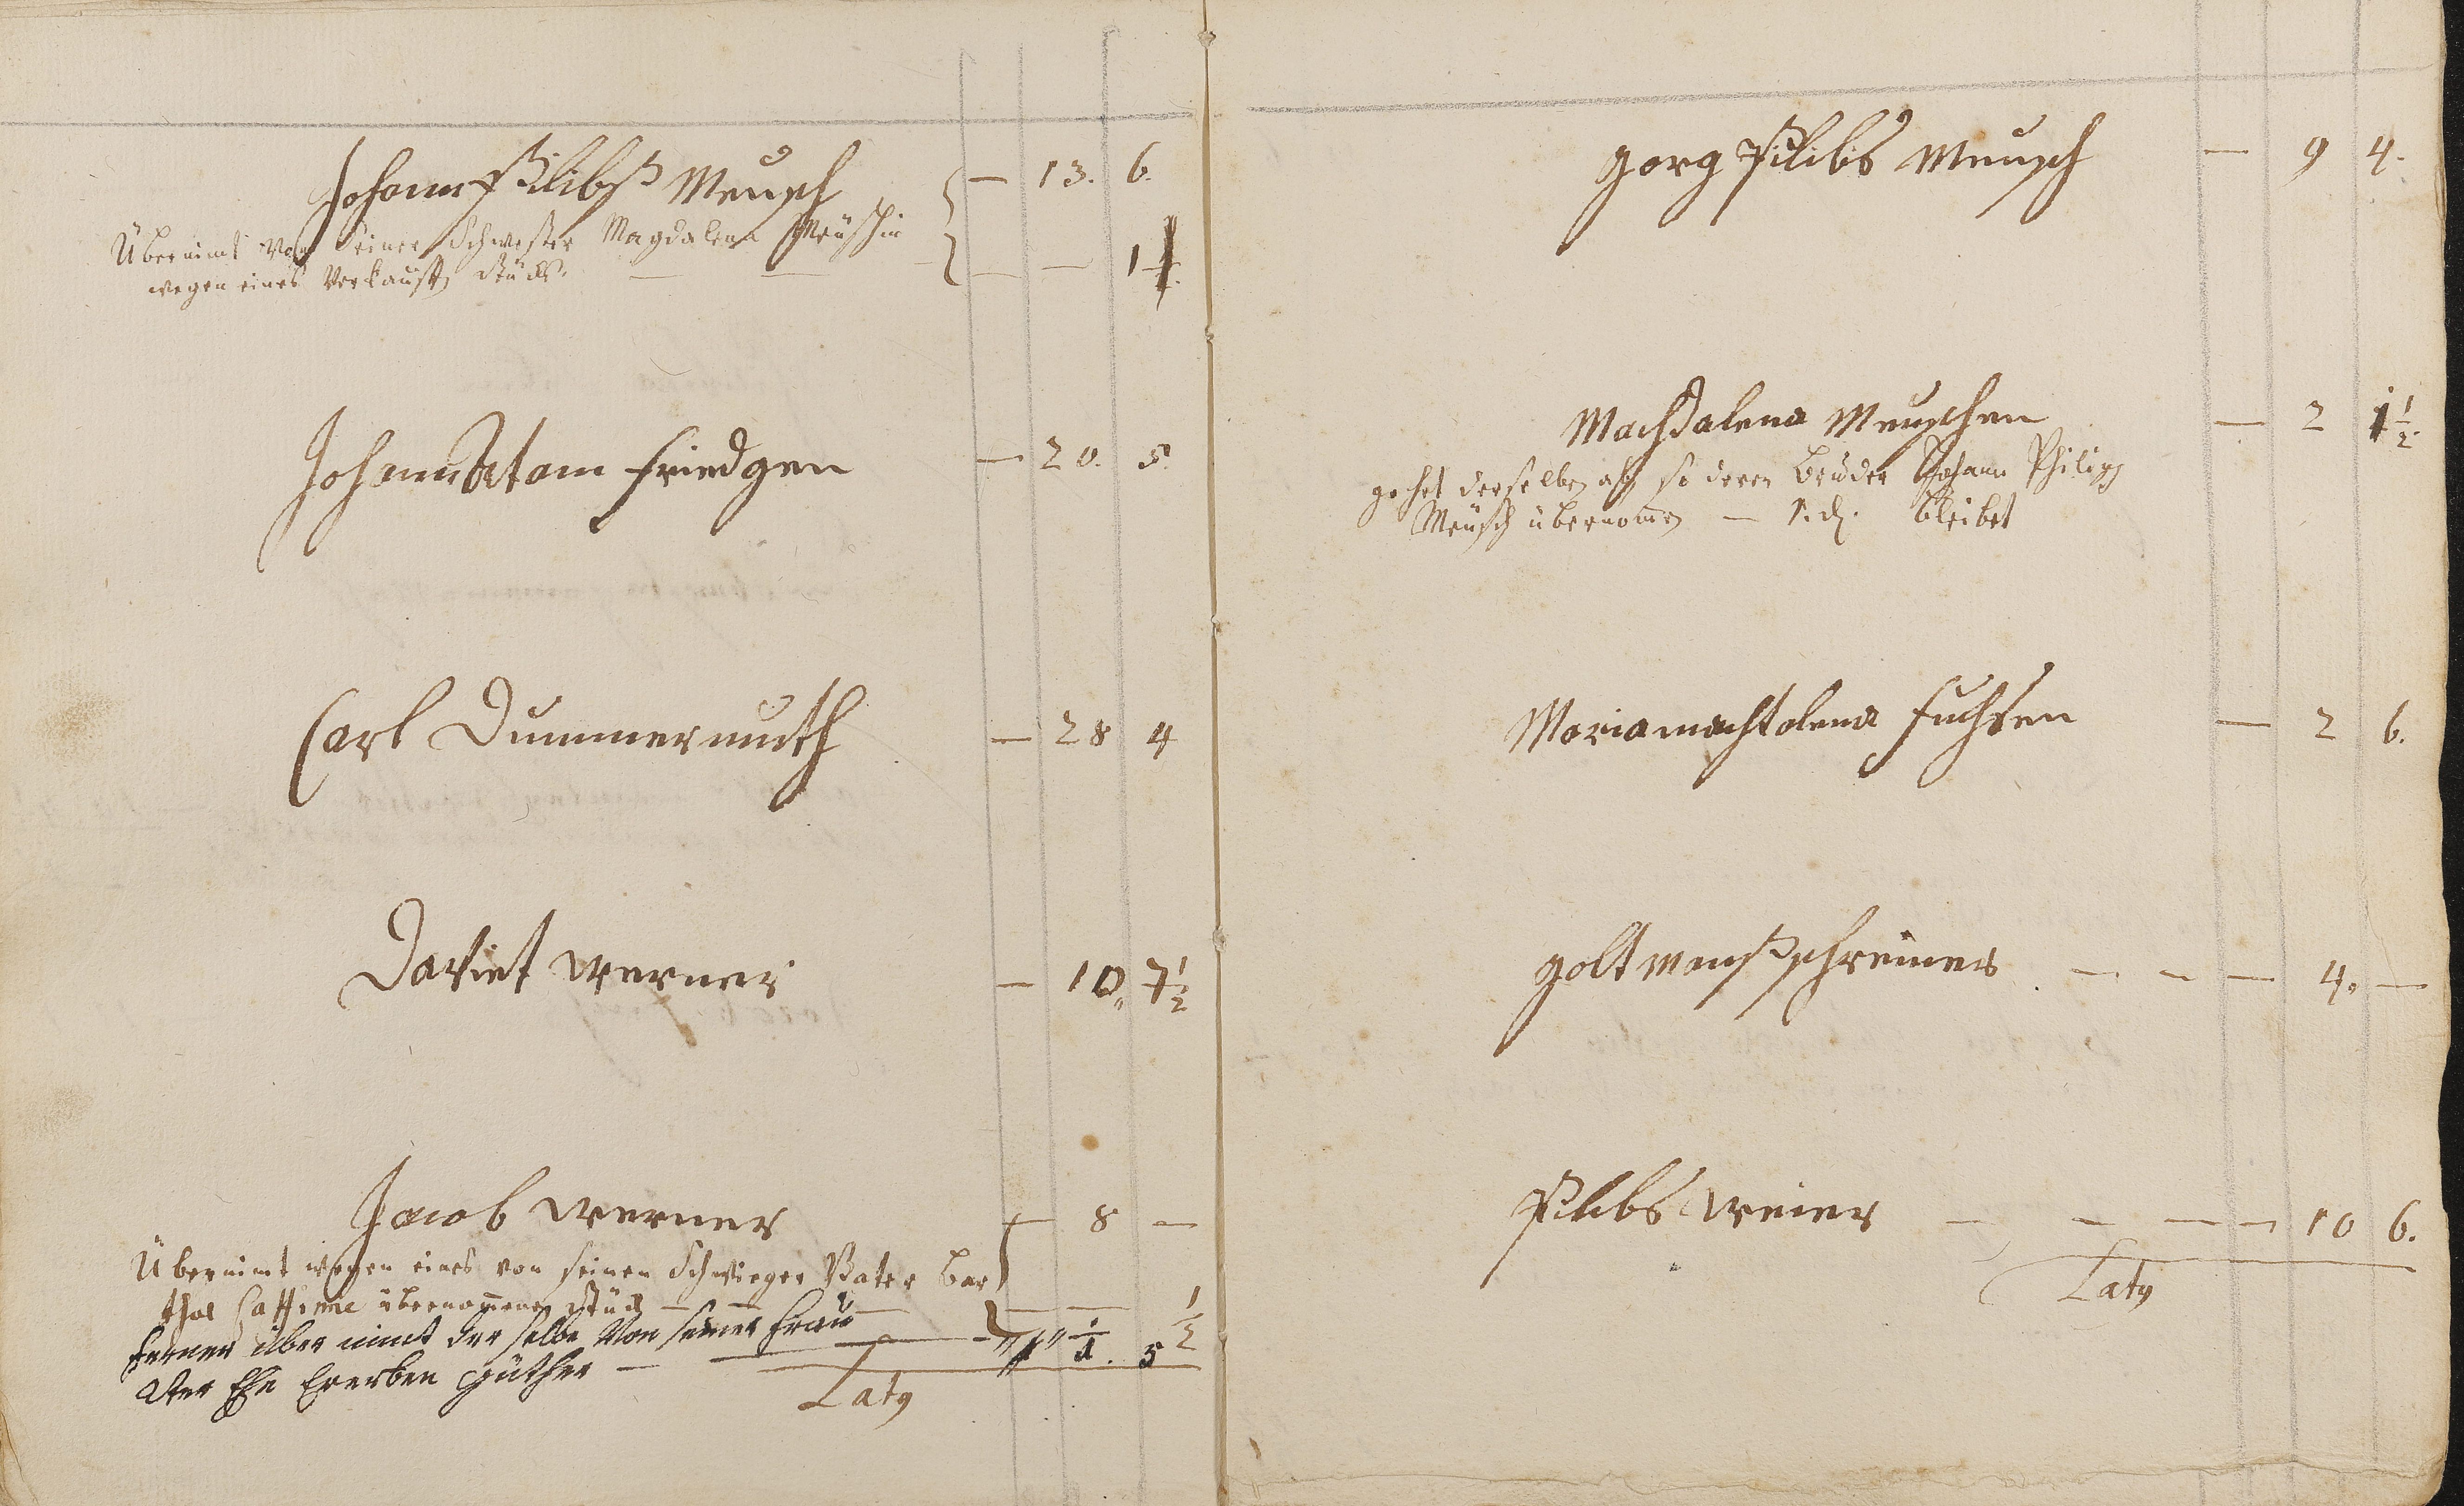 Johann Philibß Meusch — 13. 6.
Übernimt von seiner Schwester Magdalena Meuschin
wegen eines verkaufft stücks. — — — — 1
Johann Atam Friedgen — 20. 5.
Carl Dummermuth — 28 4
Daviet Werner — 10,, 7 1/2
Jacob Werner — 8 —
Übernimt wegen eines von seinen Schwieger Vater Bar
thol übernommene stück — — — —
ferner über nimt der selbe Von seiner Frau
der Ehe Ererben Güther — — 1. 5 1/2
Laty
Gorg Pilibs Meusch — 9 4.
Machdalena Meuschen — 2 1 1/2.
gehet derselben ab, so deren Bruder Johann Philipp
Meusch übernomen — 1. d. bleibet
Mariamachtalena Fuchsen — 2 6.
Goltman Schreiner — — — 4. —
Pilibs Weier — — — — 10 6.
Laty